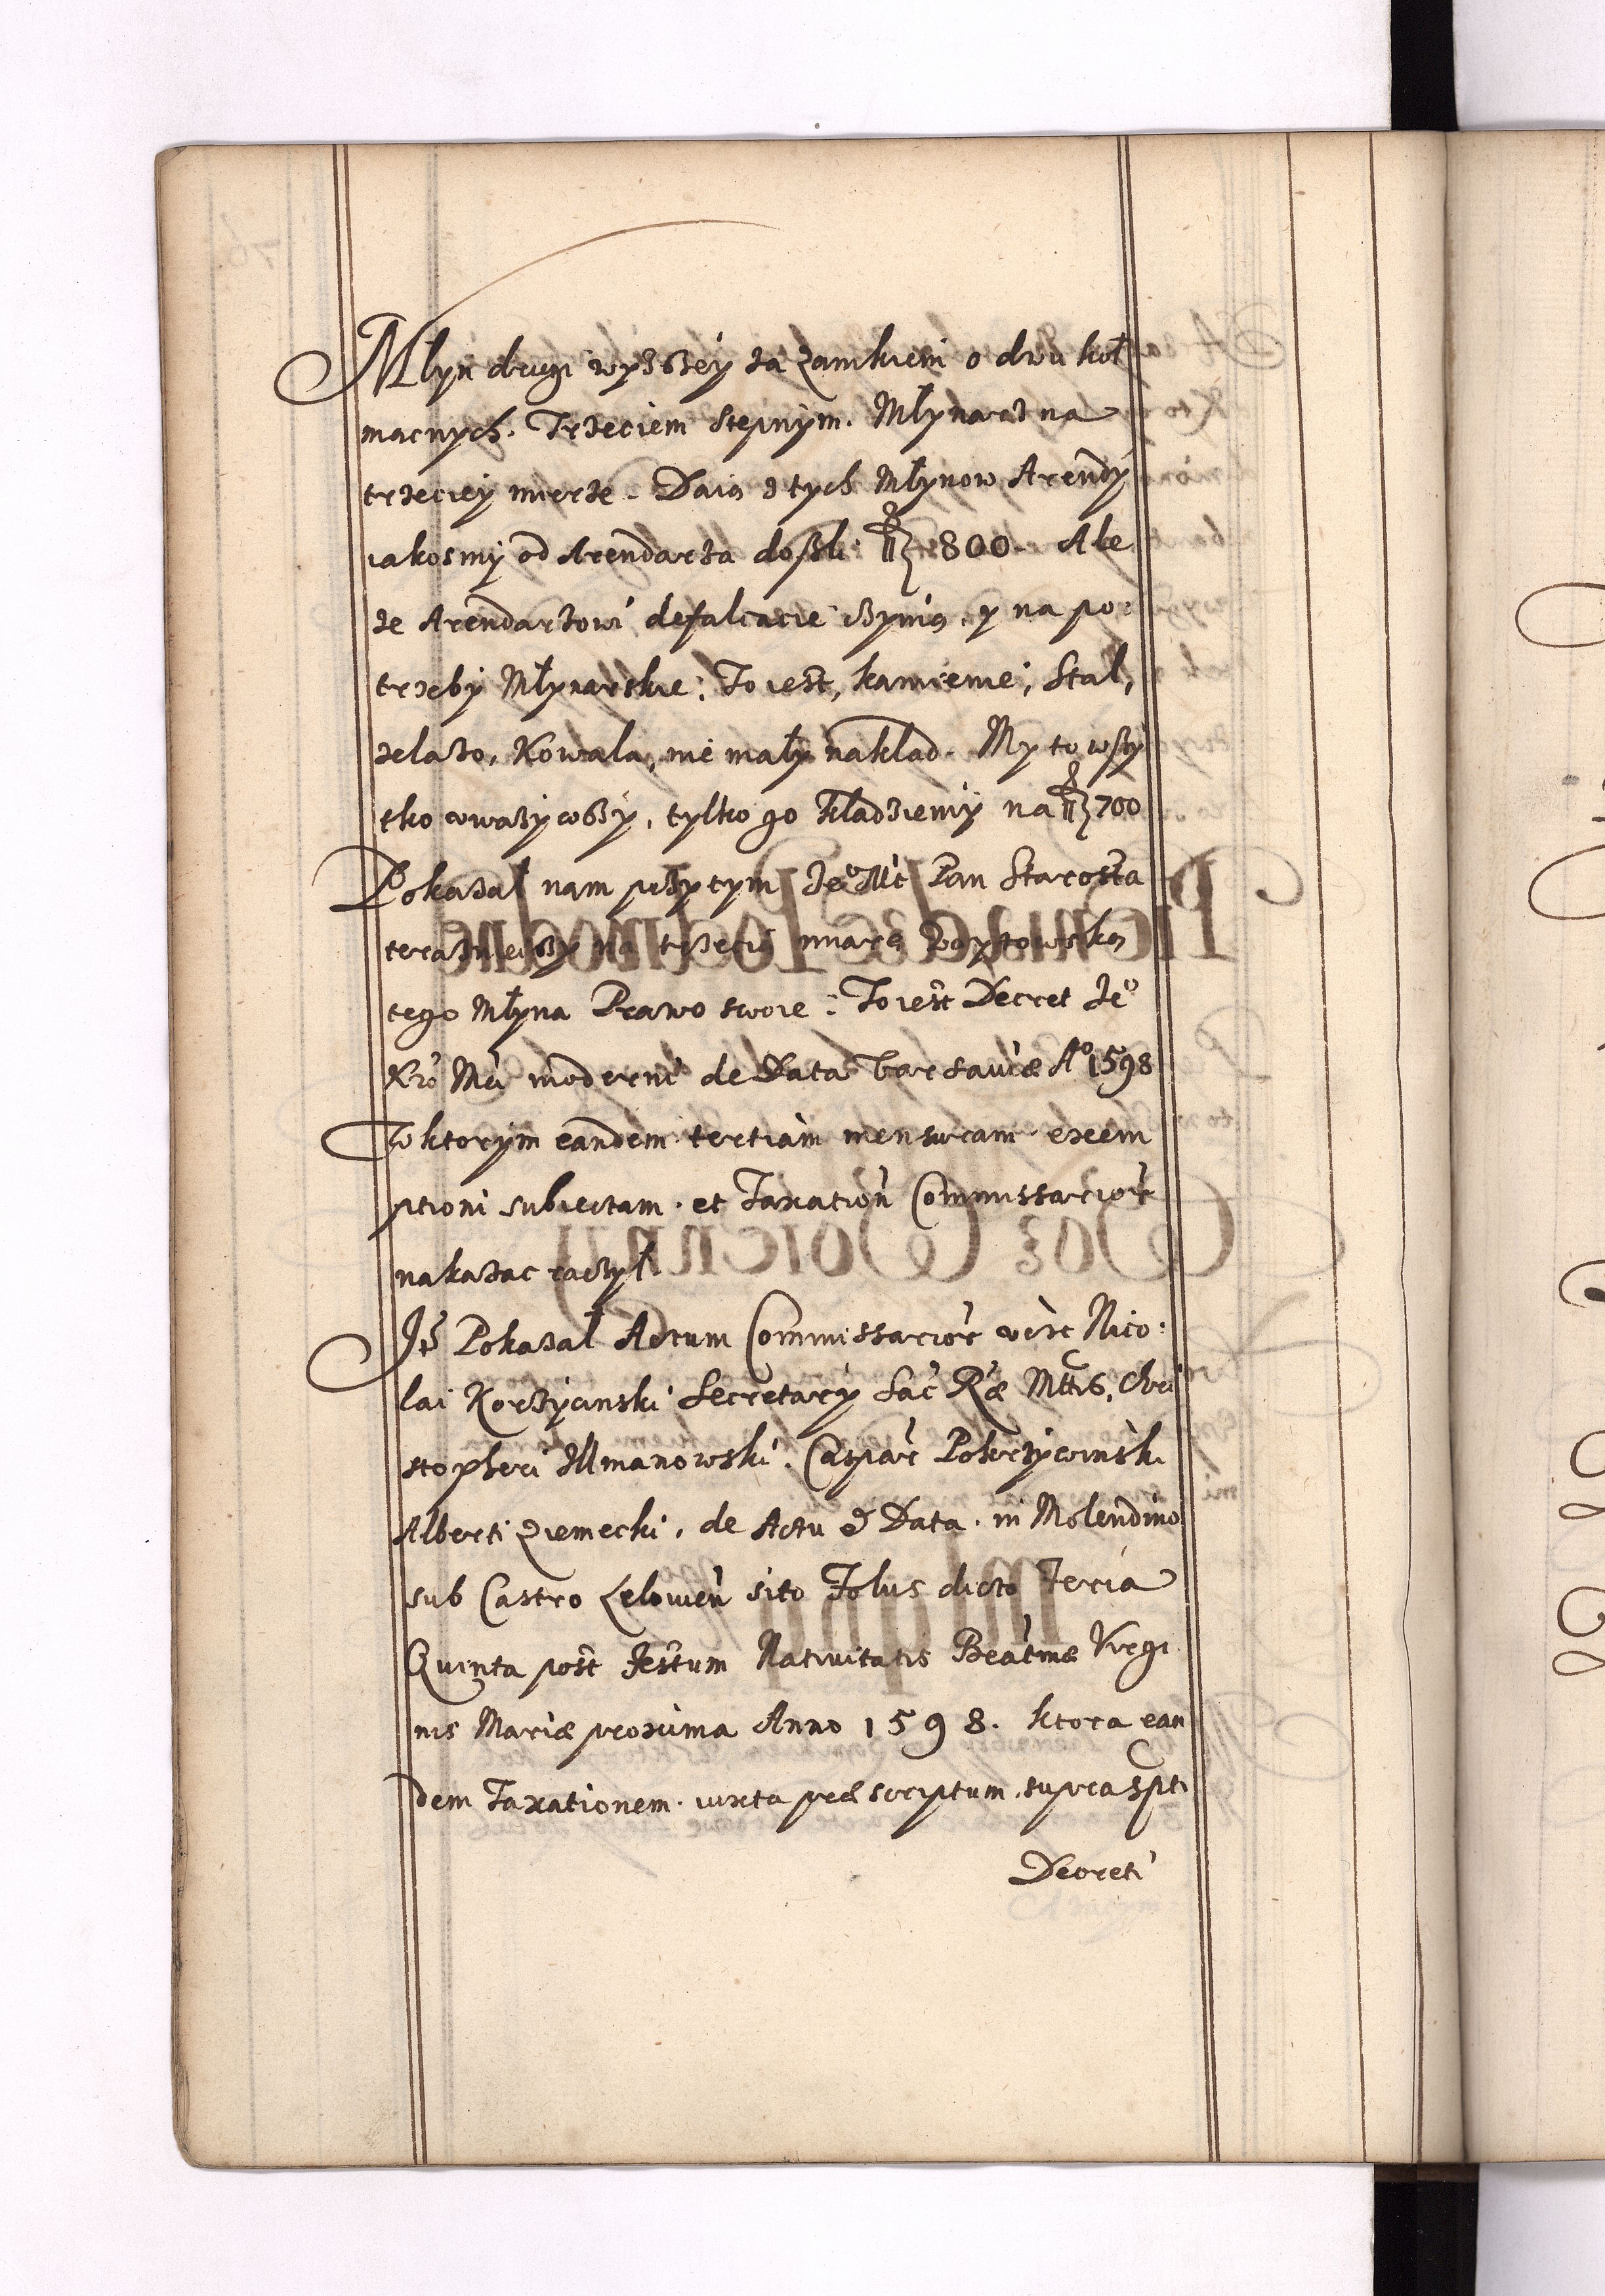 Młyn drugi wyższey za zamkiem o dwu koł
macnych. Trzeciem stepnym. Młynarz na
trzeciey mierze. Daią z tych Młynow Arendy
iakosmy od Arendarza doszli: fl 800. Ale
ze Arendarzowi defalcacie czynią, y na po:
trzeby Młynarskie: To iest, kamienie, Stal,
zelazo, Kowala, nie mały nakład. My to wszy
tko uwazywszy, tylko go kładziemy na fl 700
Pokazał nam przytym Jeº Mć Pan Starosta
teraznieyszy na trzecią miarę Woytowską
tego Młyna Prawo swoie: To iest Decret Jeº
Kró Mci moderni de Data Varsaviæ Aº 1598
W ktorym eandem tertiam mensuram exem
ptioni subiectam. et Taxation Commissarior
nakazac raczył.
Jtē Pokazał Actum Commissarior
Nico:
lai Korzycinski Secretary Sac Ræ Mttis, Chri
stopheri Ilmanowski. Caspar Pokrzywinski
Alberti Ziemecki, de Actu & Data. in Molendino
sub Castro Lelowien sito Folus dicto Feria
Quinta post Festum Nativitatis Beatmæ Virgi
nis Mariæ proxima Anno 1598. ktora ean
dem Taxationem. iuxta præscriptum. supraspti
Decreti